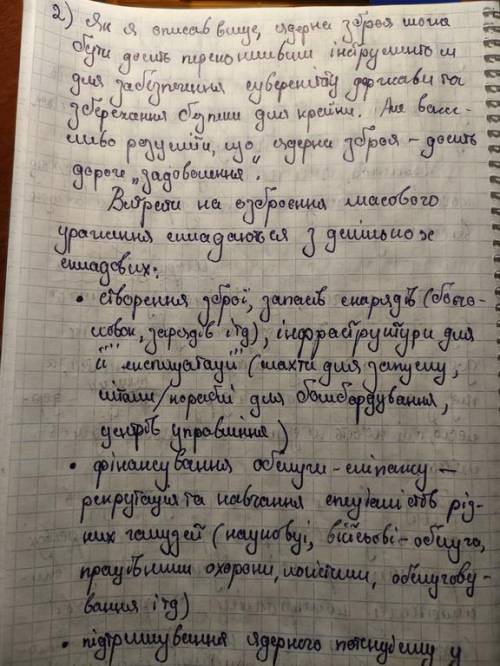 2) Як я описав вище, ядерна зброя може
бути досить переконливим інструментом
для забезпечення суверенітету держави та
збереження безпеки для країни. Але важ-
ливо розуміти, що ядерна зброя – досить
дороге „задоволення".
Витрати на озброєння масового
ураження складаються з декількох
складових:
• створення зброї, запасів снарядів (боєго-
ловок, зарядів ітд), інфраструктури для
її експлуатації (шахти для запуску,
літаки/кораблі для бомбардування,
центрів управління)
• фінансування обслуги
рекрутація та навчання спеціалістів різ-
них галузей (науковці, військові – обслуга,
працівники охорони, логістики, обслугову-
вання ітд)
• підтримування ядерного потенціалу у